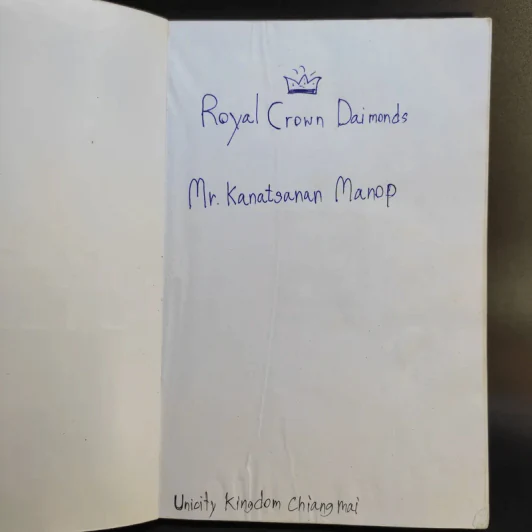 Royal Crown Daimonds
Mr. Kanatsanan Manop
Unicity Kingdom Chiang mai